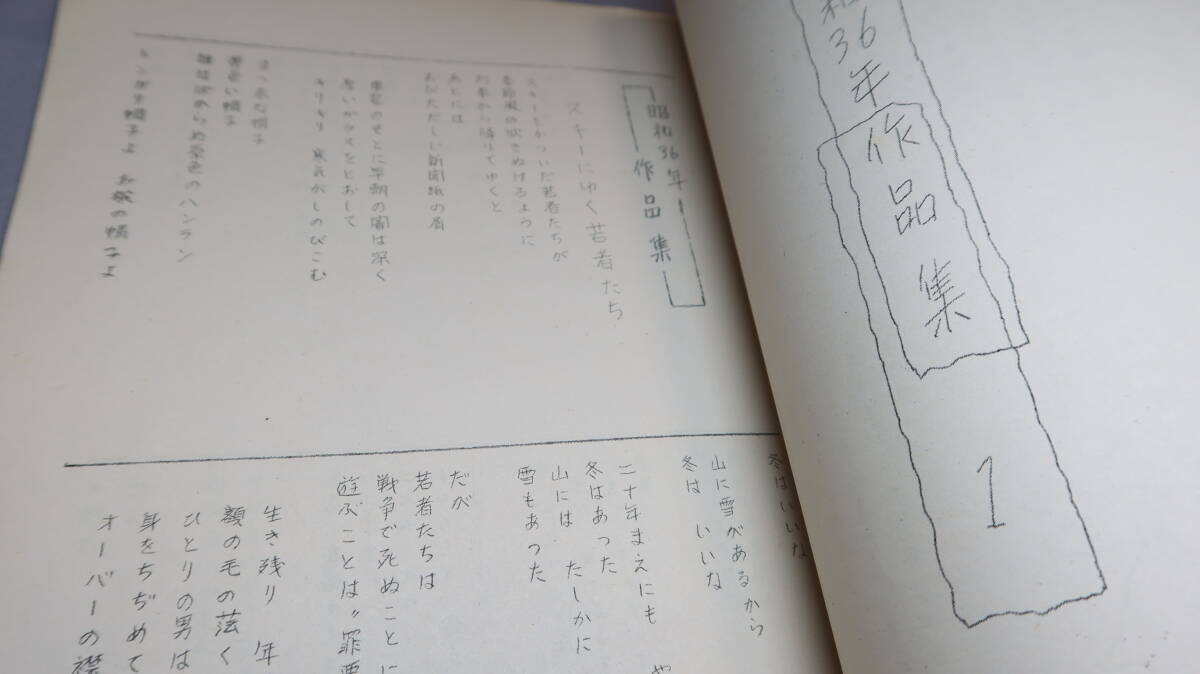 和36年
作品集
1
昭和36年
作品集
スキーにゆく若者たち
スキーをかついだ若者たちが
季節風の吹きぬけるように
列車から降りてゆくと
あとには
おびただしい新聞紙の屑
車窓のそとに早朝の闇は深く
厚いガラスをとおして
キリキリ 寒気がしのびこむ
まっ赤な帽子
黄色い帽子
雑はい原色のハンラン
トンガリ帽子よ お椀の帽子よ
冬はいいな
山に雪があるから
冬は いいな
二十年まえにも
冬はあった
山には たしかに
雪もあった
だが
若者たちは
戦争で死ぬことに
遊ぶことは〃罪悪
生き残り 年
顔の毛の薄く
ひとりの男は
身をちぢめて
オーバーの襟